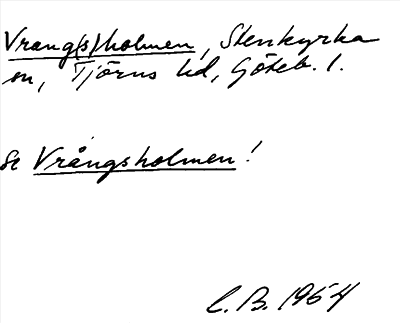 Vrang(s)holmen, Stenkyrka
sn, Tjörns hd, Göteb. l.
Se Vrångsholmen!
C. B. 1954